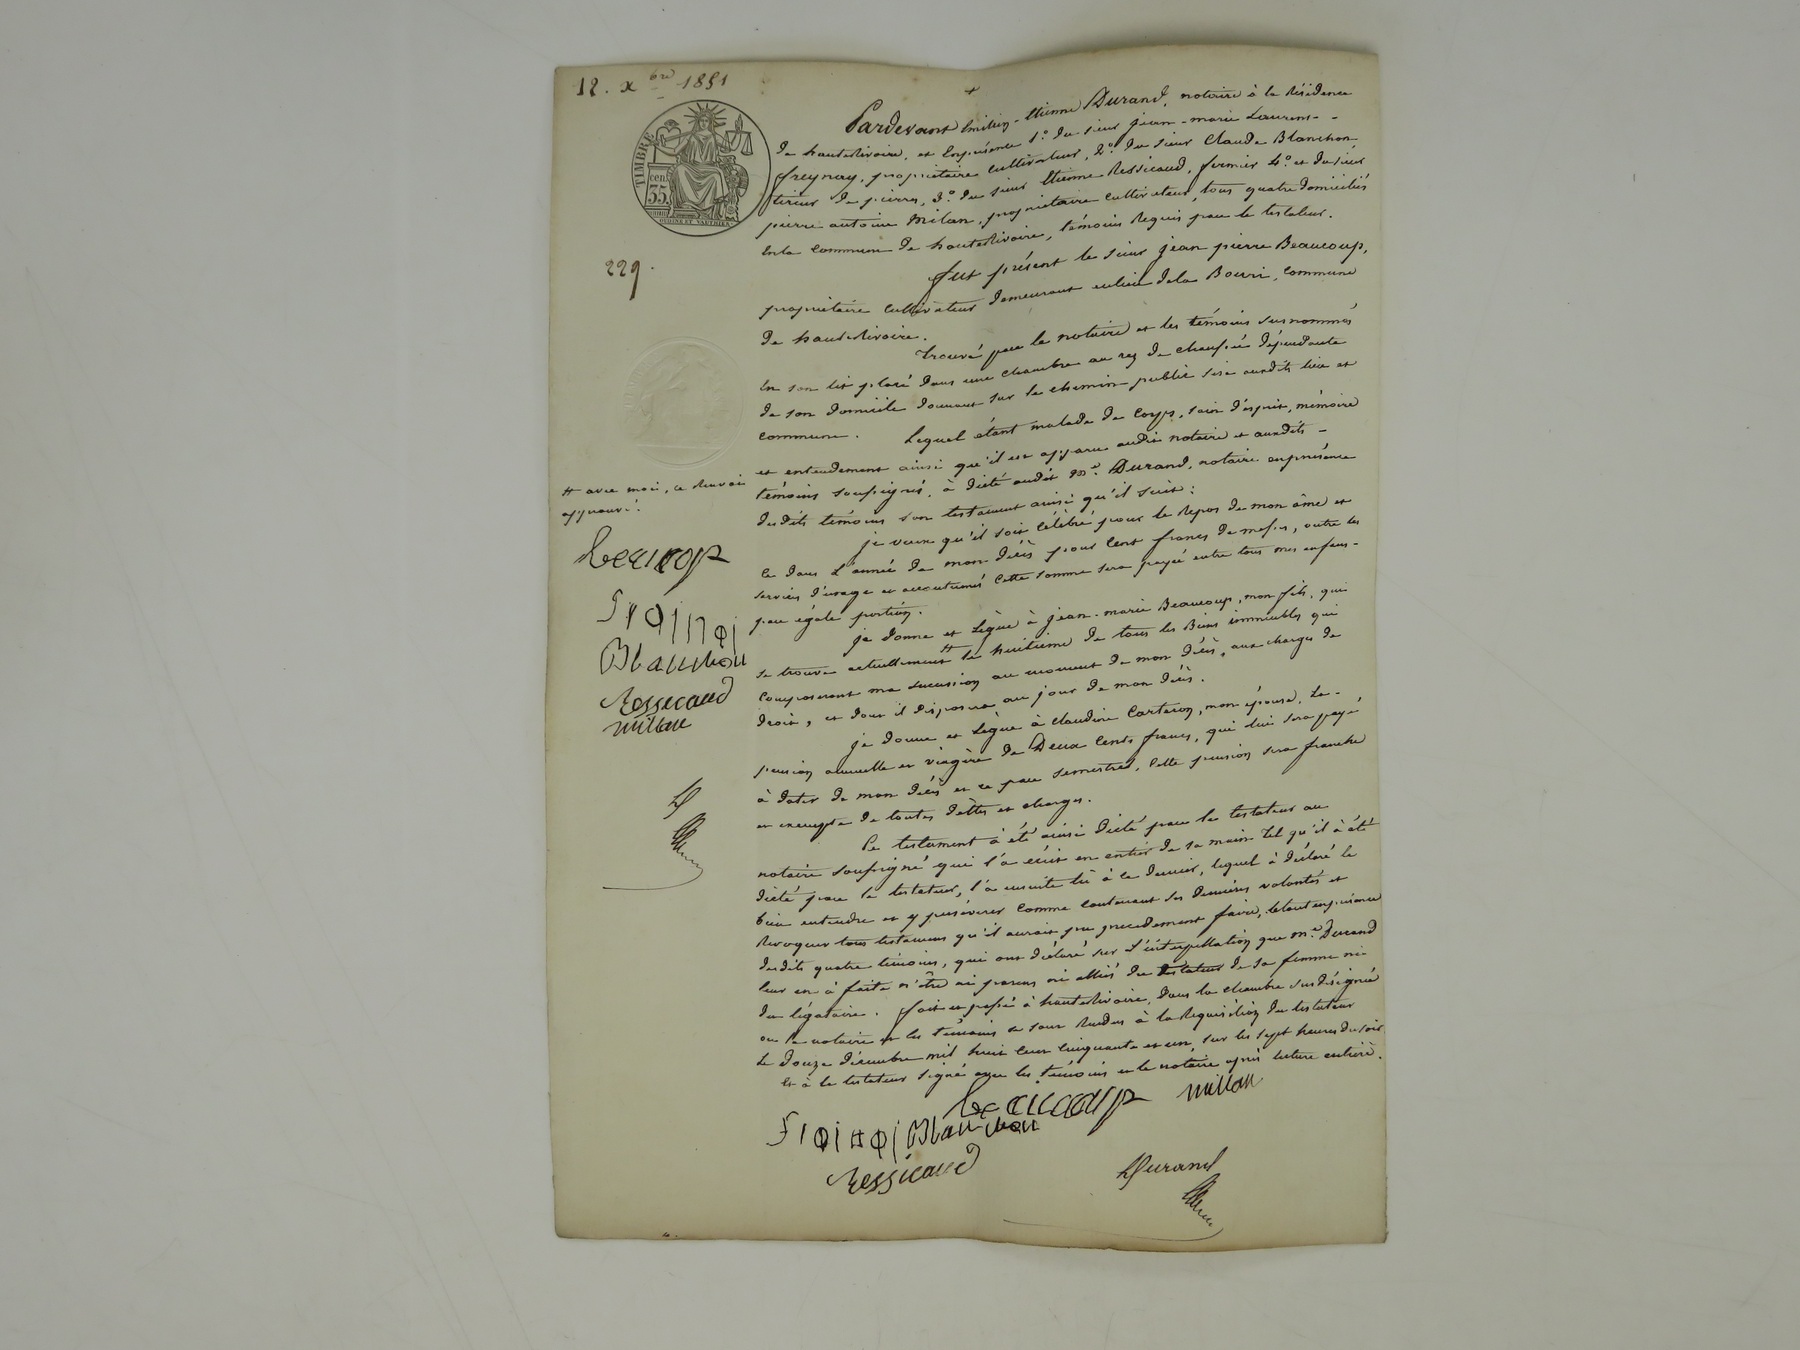 12. xbre 1851
TIMBRE
35 cen.
229.
Pardevant Emilien-Etienne Durand, notaire à la Résidence
de hauterivoire, et Enprésence 1.° du sieur jean-marie Laurent-
freynay, propriétaire cultivateur, 2.° du sieur Claude Blanchon,
tireur de pierres, 3.° du sieur Etienne Ressicaud, fermier 4.° et du sieur
pierre antoine Milan, propriétaire cultivateur, tous quatre domiciliés
Enla commune de hauterivoire, témoins Requis par le testateur.
fut présent le sieur jean pierre Beaucoup,
propriétaire cultivateur demeurant aulieu dela Bourri, commune
de hauterivoire.
Trouvé par le notaire et les témoins susnommés
En son lit placé dans une chambre au rez de chaussée dépendante
de son domicile donnant sur le chemin public sise auxdits lieu et
commune. Lequel étant malade de Corps, sain d'esprit, mémoire
et entendement ainsi qu'il est apparu audit notaire et auxdits-
témoins soussignés, à dicté audit me. Durand, notaire enprésence
desdits témoins son testament ainsi qu'il suit:
je veux qu'il soit célébré pour le Repos de mon âme et
ce dans L'année de mon décès pour Cent francs de messes, outre les
services d'usage et accoutumés Cette somme sera payée entre tous mes enfans-
par égale portion.
je donne et Lègue à jean-marie Beaucoup, mon fils, qui
se trouve actuellement # le huitième de tous les Biens immeubles qui
composeront ma succession au moment de mon décès, aux charges de
droit, et dont il disposera au jour de mon décès.
je donne et Lègue à Claudine Carteron, mon épouse, La-
pension annuelle et viagère de Deux Cents francs, qui lui sera payé
à dater de mon décès et ce par semestres, Cette pension sera franche
et exempte de toutes dèttes et charges.
Ce testament à été ainsi dicté par le testateur au
notaire soussigné qui l'a écrit en entier de sa main tel qu'il à été
dicté par le testateur, l'a ensuite lû à ce dernier, lequel à déclaré le
bien entendre et y persévérer comme contenant ses dernières volontés et
Revoquer tous testamens qu'il aurait pu précedement faire, letout enprésence
desdits quatre témoins, qui ont déclaré sur L'interpellation que me. Durand
leur en à faite n'être ni parens ni alliés du testateur de sa femme ni-
du légataire. fait et passé à hauterivoire, dans la chambre susdésignée
ou le notaire et les témoins se sont Rendus à la Requisition du testateur
Le Douze décembre mil huit cent cinquante et un, sur les sept heures du soir
Et à le testateur signé avec les témoins et le notaire après lecture entière.
# avec moi, ce Renvoi
approuvé.
Blanchon
Ressicaud
millan
D
millan
Blanchon
Ressicaud
Durand